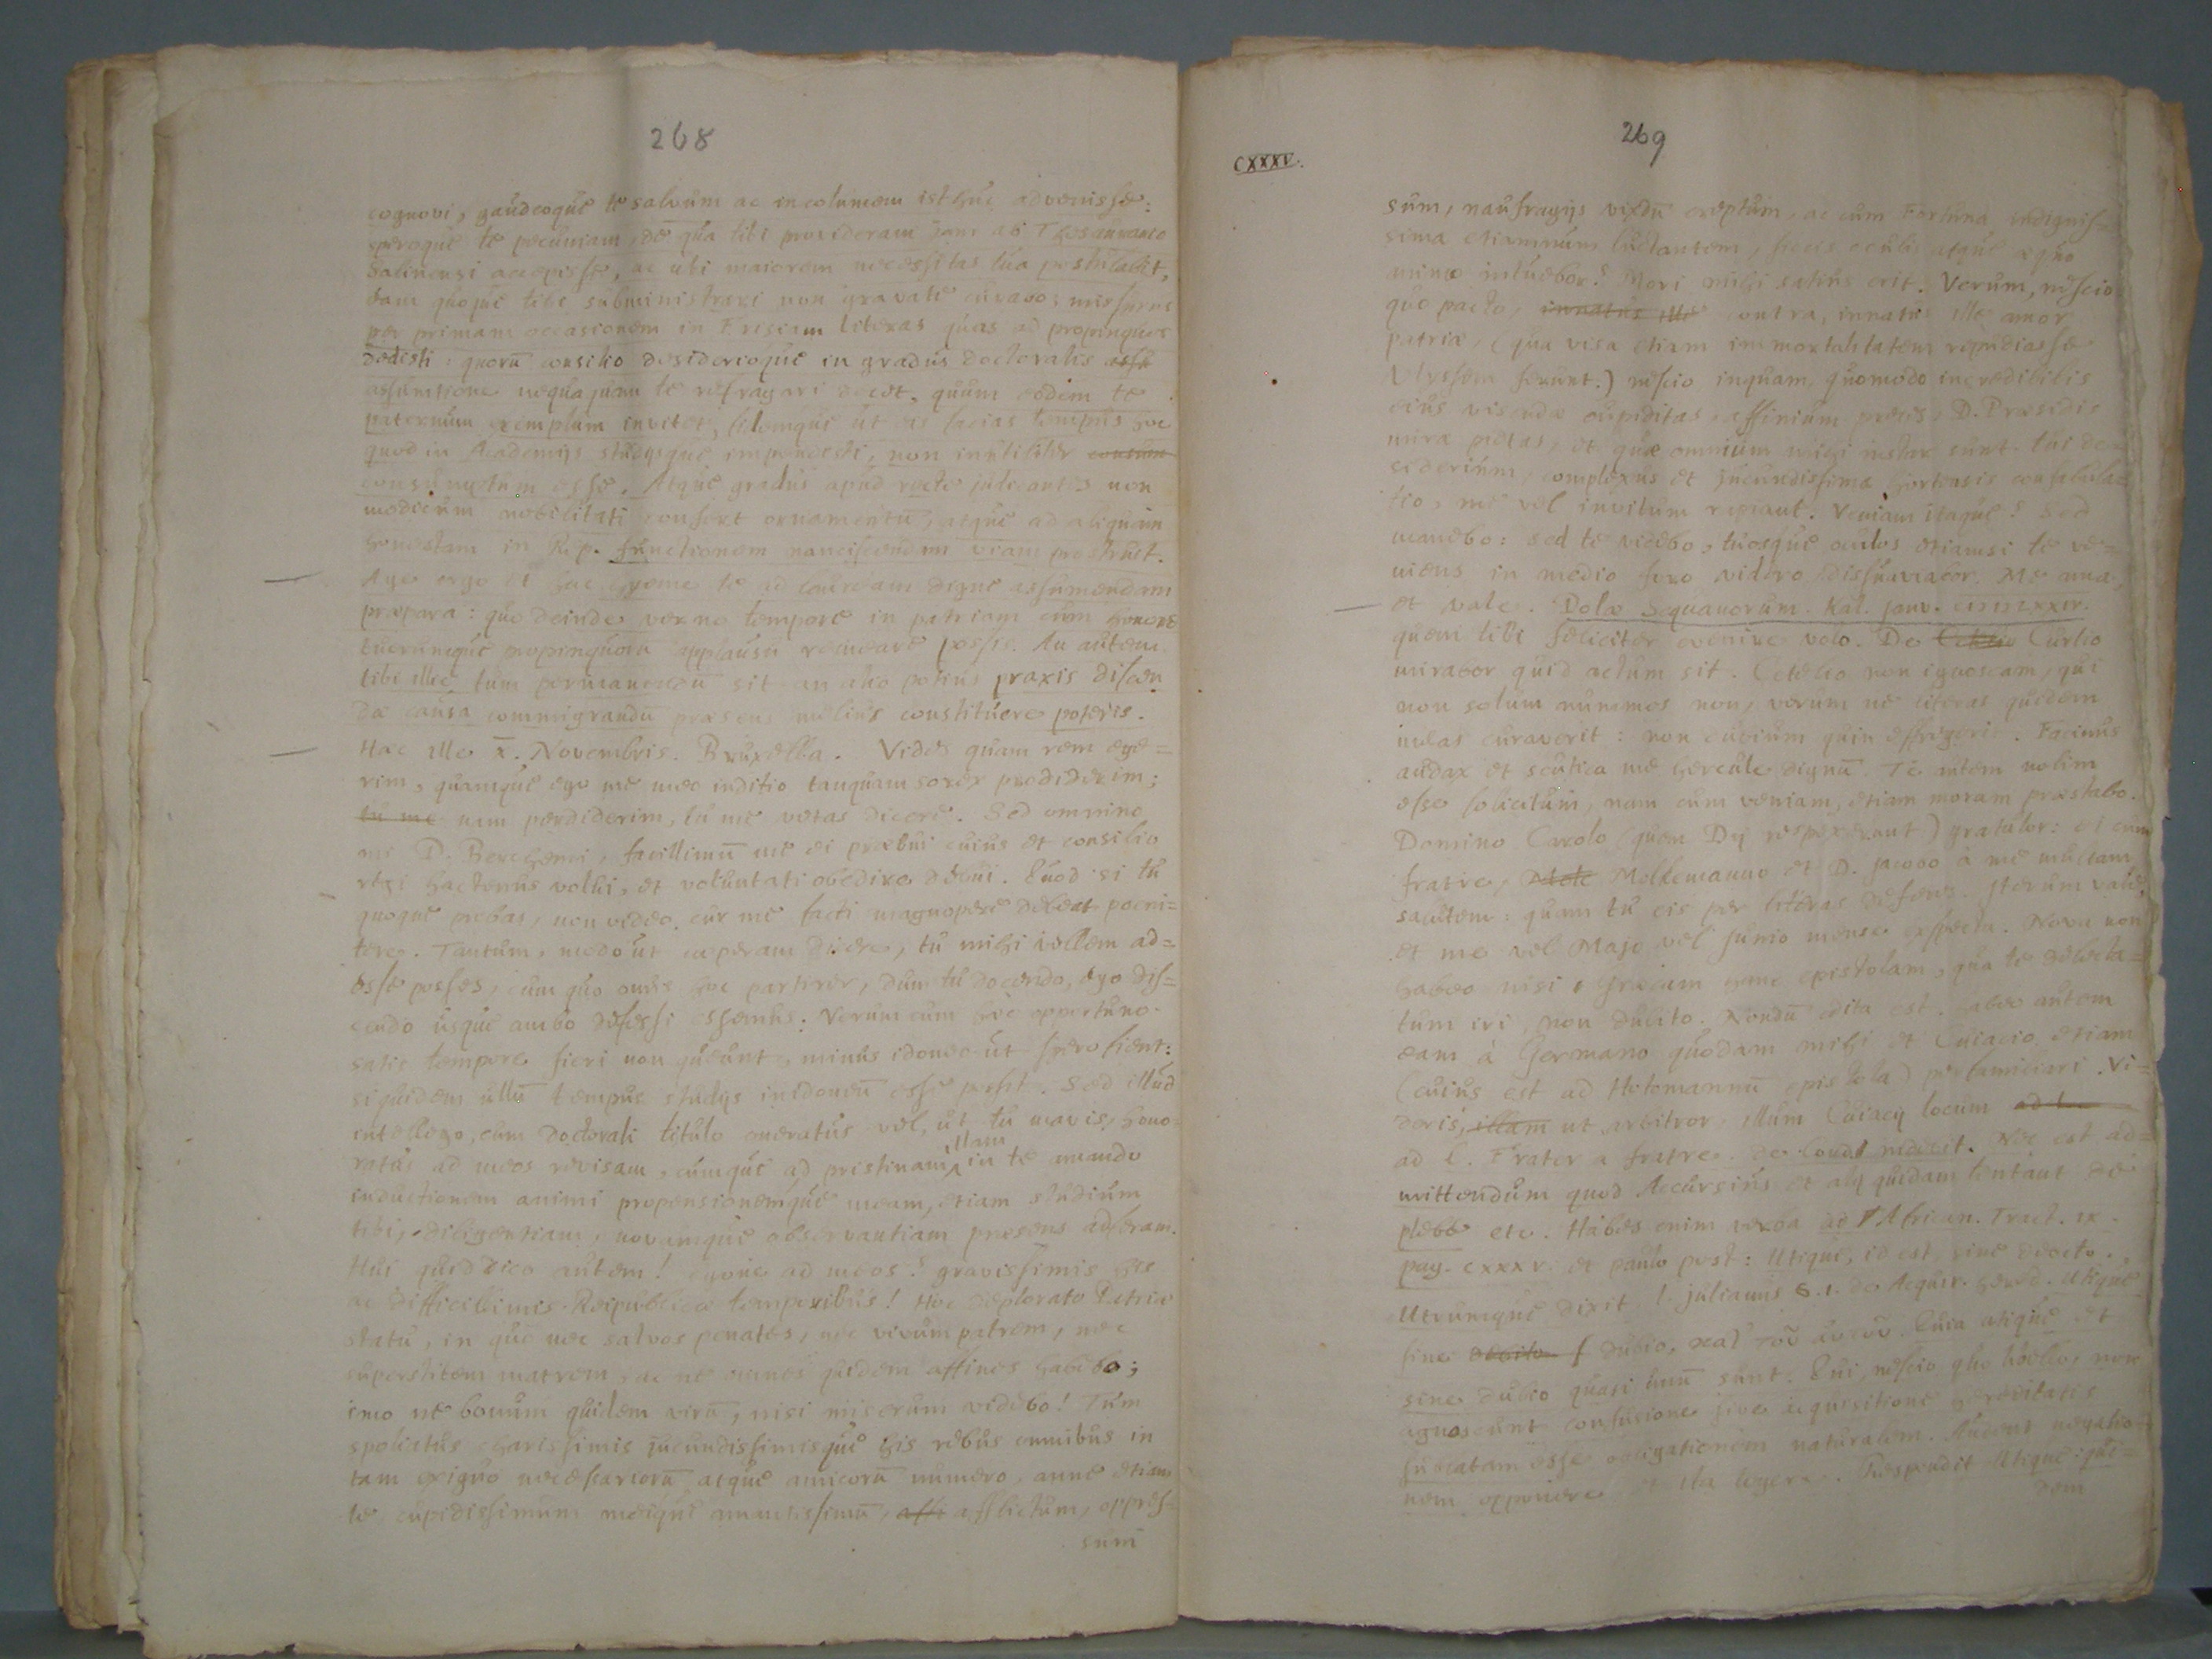 268
cognovi, gaudeoque te salvum ac incolumem isthuc advenisse:
speroque te pecuniam, de qua tibi provideram jam ab Thesaurario
Salinensi accepisse, ac ubi maiorem necessitas tua postulabit,
eam quoque tibi subministrari non gravate curabo: missurus
per primam occasionem in Frisiam literas quas ad propinquos
dedisti: quorū consilio desiderioque in gradus doctoralis
assumtione nequaquam te refragari decet. quum eodem te
paternum exemplum invitet, fidemque ut is facias tempus hoc
quod in Academijs studijsque impendisti, non inutiliter
consumptum esse. Atque gradus apud recte judicantes non
modicum nobilitati confert ornamentū, atque ad aliquam
honestam in Rep. functionem nanciscendam viam prestruit.
Age ergo et hac hyeme te ad lauream digne assumendam
præpara: quo deinde verno tempore in patriam cum honore
tuorumque propinquorū applausu remeare possis. An autem
tibi illic tum permanendū sit an alio potius praxis discen
dæ causa commigrandū præsens melius constituere poteris.
Hæc ille x. Novembris. Bruxella. Vides quam rem ege=
rim, quamque ego me meo inditio tanquam sorex prodiderim;
tu me nam perdiderim, tu me vetas dicere. Sed omnino
mi D. Berchemi, facillimū me ei præbui cuius et consilio
regi hactenus volui, et voluntati obedire debui. Quod si tu
quoque probas, non video cur me facti magnopere debeat poeni=
tere. Tantum, modo ut cœperam dicere, tu mihi vellem ad=
esse posses, cum quo onus hoc partirer, dum tu docendo, ego dis=
cendo usque ambo defessi essemus: Verum cum hoc opportuno
satis tempore fieri non queunt, minus idoneo ut spero fient:
siquidem ullū tempus studijs inidoneū esse potest. Sed illud
intellego, cum doctorali titulo oneratus vel, ut tu mavis, hono=
ratus ad meos revisam, cumque ad pristinam illam in te amando
inductionem animi propensionemque meam, etiam studium
tibi, diligentiam, novamque observantiam præsens adferam.
Hui quid dico autem! egone ad meos? gravissimis his
ac difficilimis Reipublicæ temporibus! Hoc deplorato Patriæ
statu, in quo nec salvos penates, nec vivum patrem, nec
superstitem matrem, ac ne omnes quidem affines habebo;
imo ne bonum quidem virū, nisi miserum videbo! Tum
spoliatus charissimis jucundissimisque his rebus omnibus in
tam exiguo necessariorū atque amicorū numero, anne etiam
te cupidissimum meique amantissimū, affi afflictum, oppres=
sum
269
CXXXV.
sum, naufragijs vixdū ereptum, ac cum Fortuna indignis=
sima etiamnum luctantem, siccis oculis atque æquo
animo intuebor? Mori mihi satius erit. Verum, nescio
quo pacto, innatus ille contra, innatus ille amor
patriæ, (qua visa etiam immortalitatem repudiasse
Ulyssem ferunt.) nescio inquam quomodo incredibilis
eius visendæ cupiditas, affinium preces, D. Præsidis
miræ pietas, et quæ omnium mihi instar sunt tui de=
siderium, complexus et jucundissima hortensis confabula=
tio, me vel invitum rapiant. Veniam itaque? Sed
manebo: sed te videbo, tuosque oculos etiamsi te ve=
niens in medio foro videro dissuaviabor. Me ama,
et vale. Dolæ Sequanorum. Kal. Janv.
quem tibi feliciter evenire volo. De Curtio
mirabor quid actum sit. Cetelio non ignoscam, qui
non solum nummos non, verum ne literas quidem
meas curaverit: non dubium quin effregerit. Facinus
audax et scutica me hercule dignū. Te autem nolim
esse solicitum, nam cum veniam, etiam moram præstabo.
Domino Carolo (quem Dij respexerunt) gratulor: et cum
fratre, Molkemanno et D. Jacobo à me nunciam
salutem: quam tu eis per literas deferes. Iterum vale,
et me vel Majo vel Junio mense exspecta. Nova non
habeo nisi Græcam hanc epistolam, qua te delecta=
tum iri non dubito. Nondū edita est. habeo autem
eam à Germano quodam mihi et Cuiacio etiam
(cuius est ad Hotomannū epistola) perfamiliari. Vi=
deris, illam ut arbitror, illum Cuiacij locum
ad l. Frater a fratre. de Cond. indebit. Nec est ad=
mittendum quod Accursius et alij quidam tentant de
plebe etc. Habes enim verba ad African. Tract. ix.
pag. cxxxv. et paulo post: Utique, id est, sine
Utrumque dixit l. julianus §.1. de Acquir. hered. utique
sine debito f dubio, καὶ τοῦ Quia utique et
sine dubio quasi unū sunt. Qui, nescio quo, non
agnoscunt confusione sive acquisitione hereditatis
sublatam esse obligationem naturalem. Audent negatio=
nem opponere et ita legere. Respondit Utique qui=
dem